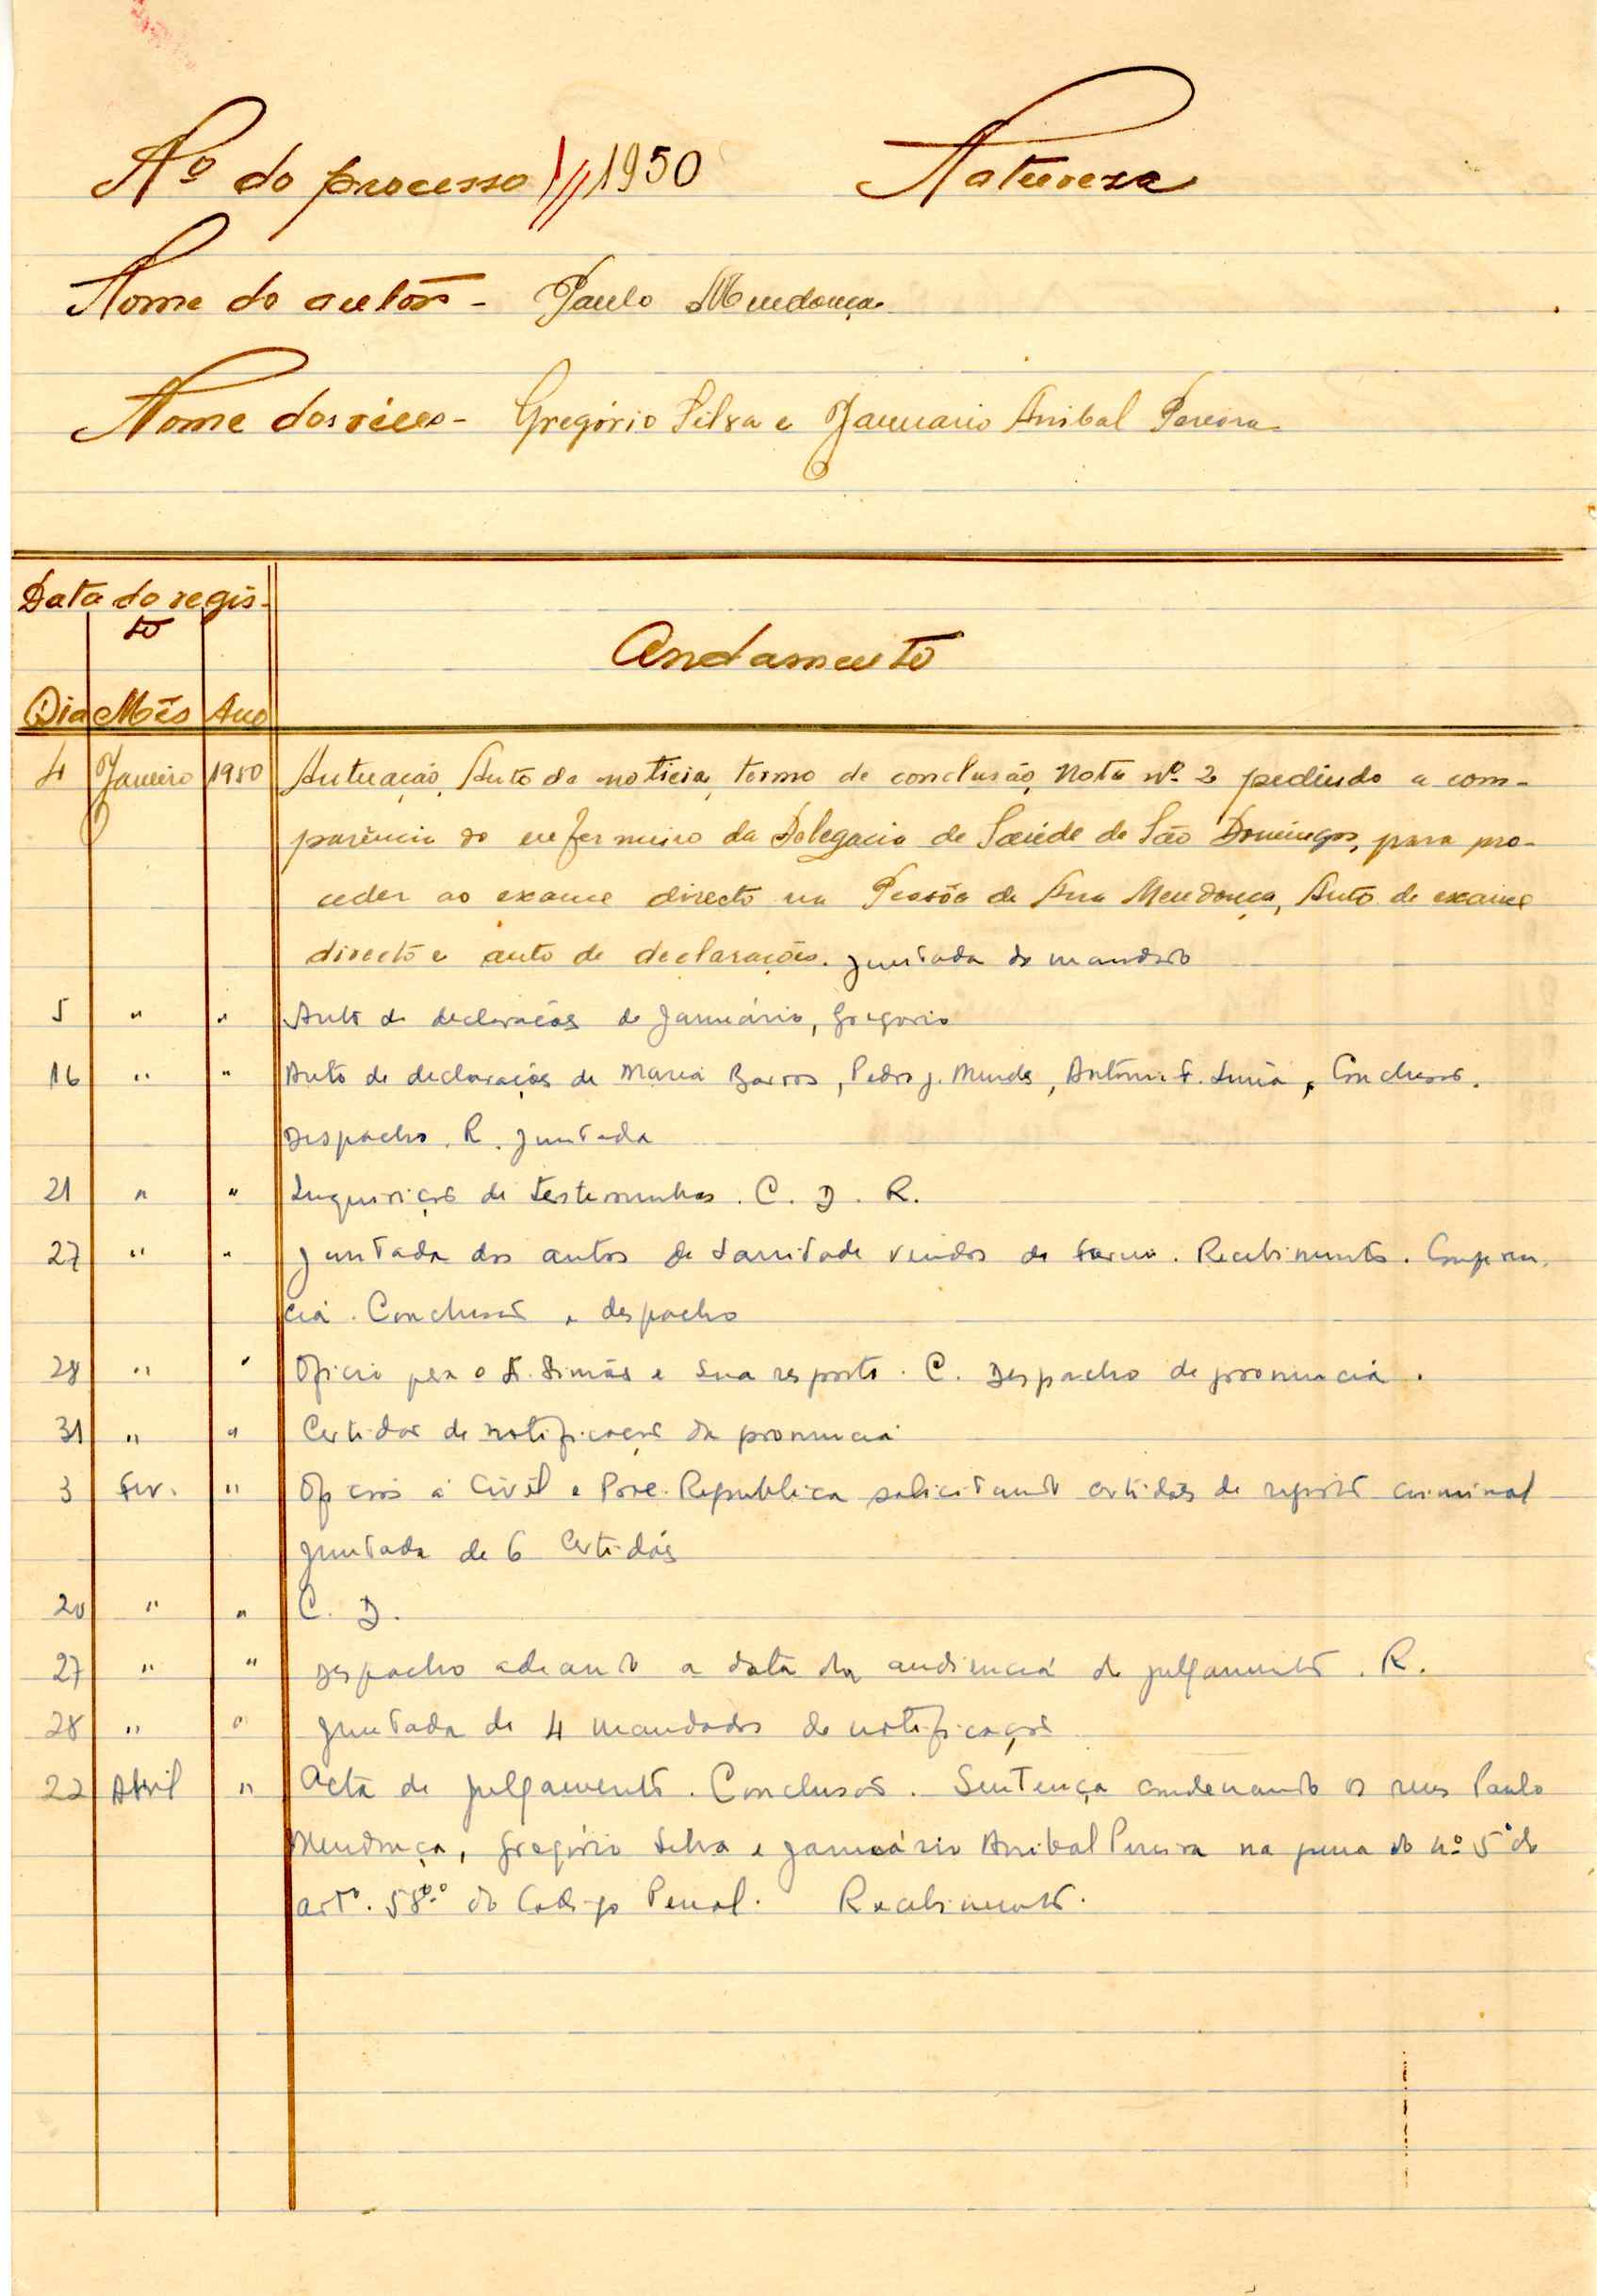 Nº do processo 1/1950 Natureza
Nome do autôr - Paulo Mendonça
Nome dos réus - Gregório Silva e Januario Anibal Pereira
Data do regis-
to
Andamento
Dia Mês Ano
4 Janeiro 1950 Autuação, Auto da noticia, termo de conclusão, Nota nº 2 pedindo a com-
parência do enfermeiro da Delegacia de Saúde de São Domingos, para pro-
ceder ao exame directo na Pessôa de Ana Mendonça, Auto de exame
directo e auto de declarações. Juntada do mandado
5 " " Auto de declarações de Januário, Gregorio
16 " " Auto de declarações de Maria Barros, Pedro J. Mendes, António F. Conclusos.
Despacho. R. Juntada
21 " " Inquirição de testemunhas. C. D. R.
27 " " Juntada dos autos de Sanidade vindos de Recebimento. Comparen-
cia. Conclusos e despacho
28 " " Oficio para o Dr. Simas e sua resposta. C. Despacho de pronuncia.
31 " " Certidão de notificação da pronuncia
3 Fev. " Oficios á Civil e Republica solicitando certidões de registo criminal
Juntada de 6 Certidões
20 " " C. D.
27 " " Despacho adeando a data da audiencia de julgamento. R.
28 " " Juntada de 4 mandados de notificação
22 Abril " Acta de julgamento. Conclusos. Sentença condenando os reus Paulo
Mendonça, Gregório Silva e Januário Anibal Pereira na pena do nº 5º do
artº. 58º do Codigo Penal. Recebimento.